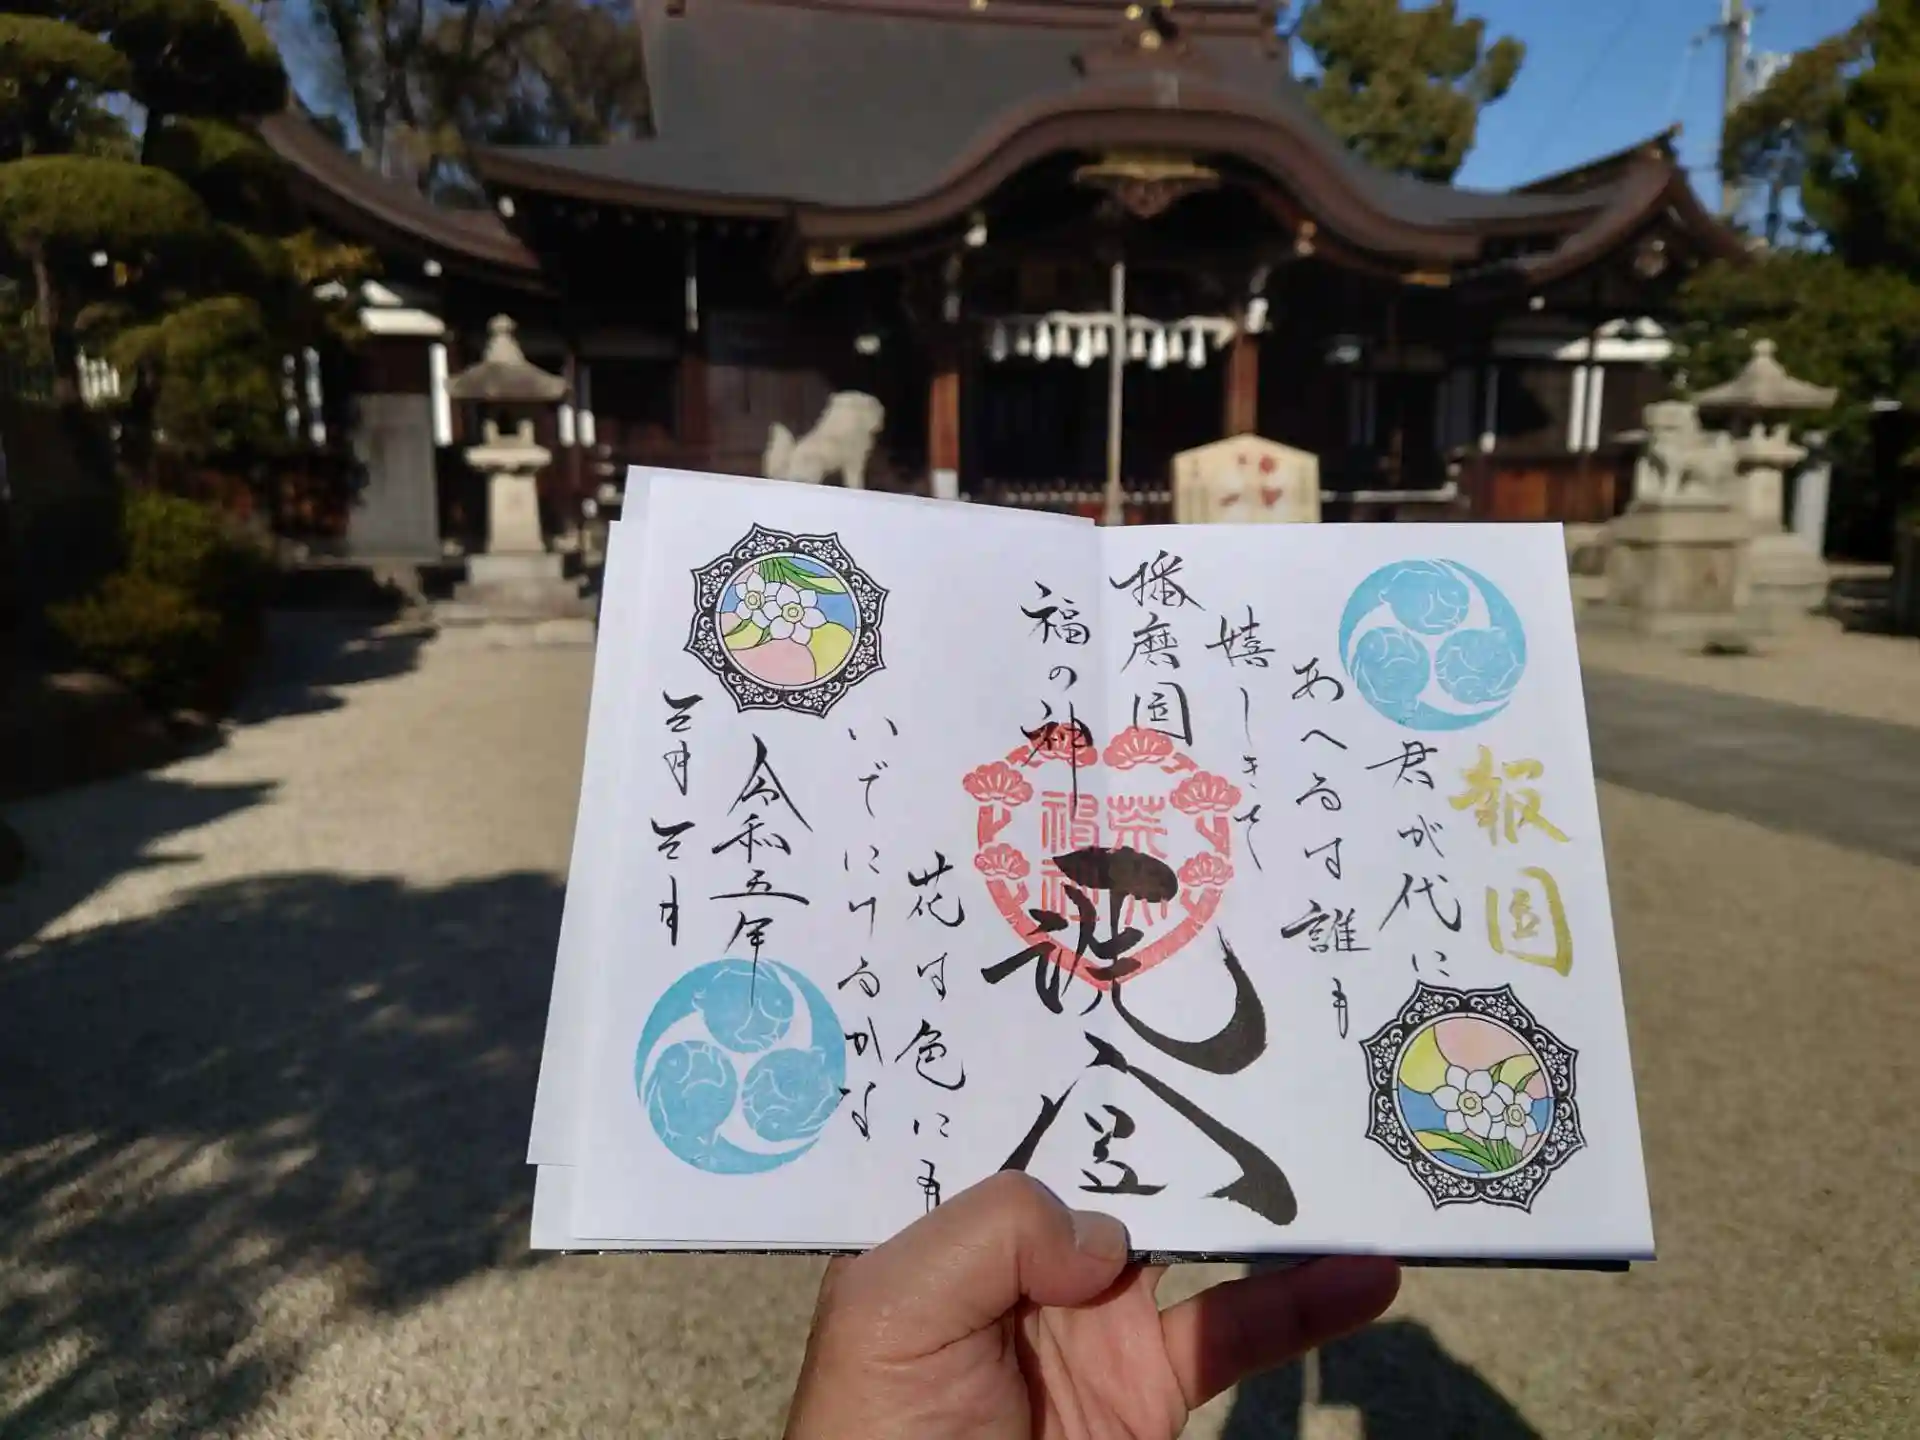 報国
君が代に
あへるは誰も
嬉しきを
播磨国
福の神
荒川
神社
花は色にも
いでにけるかな
令和五年